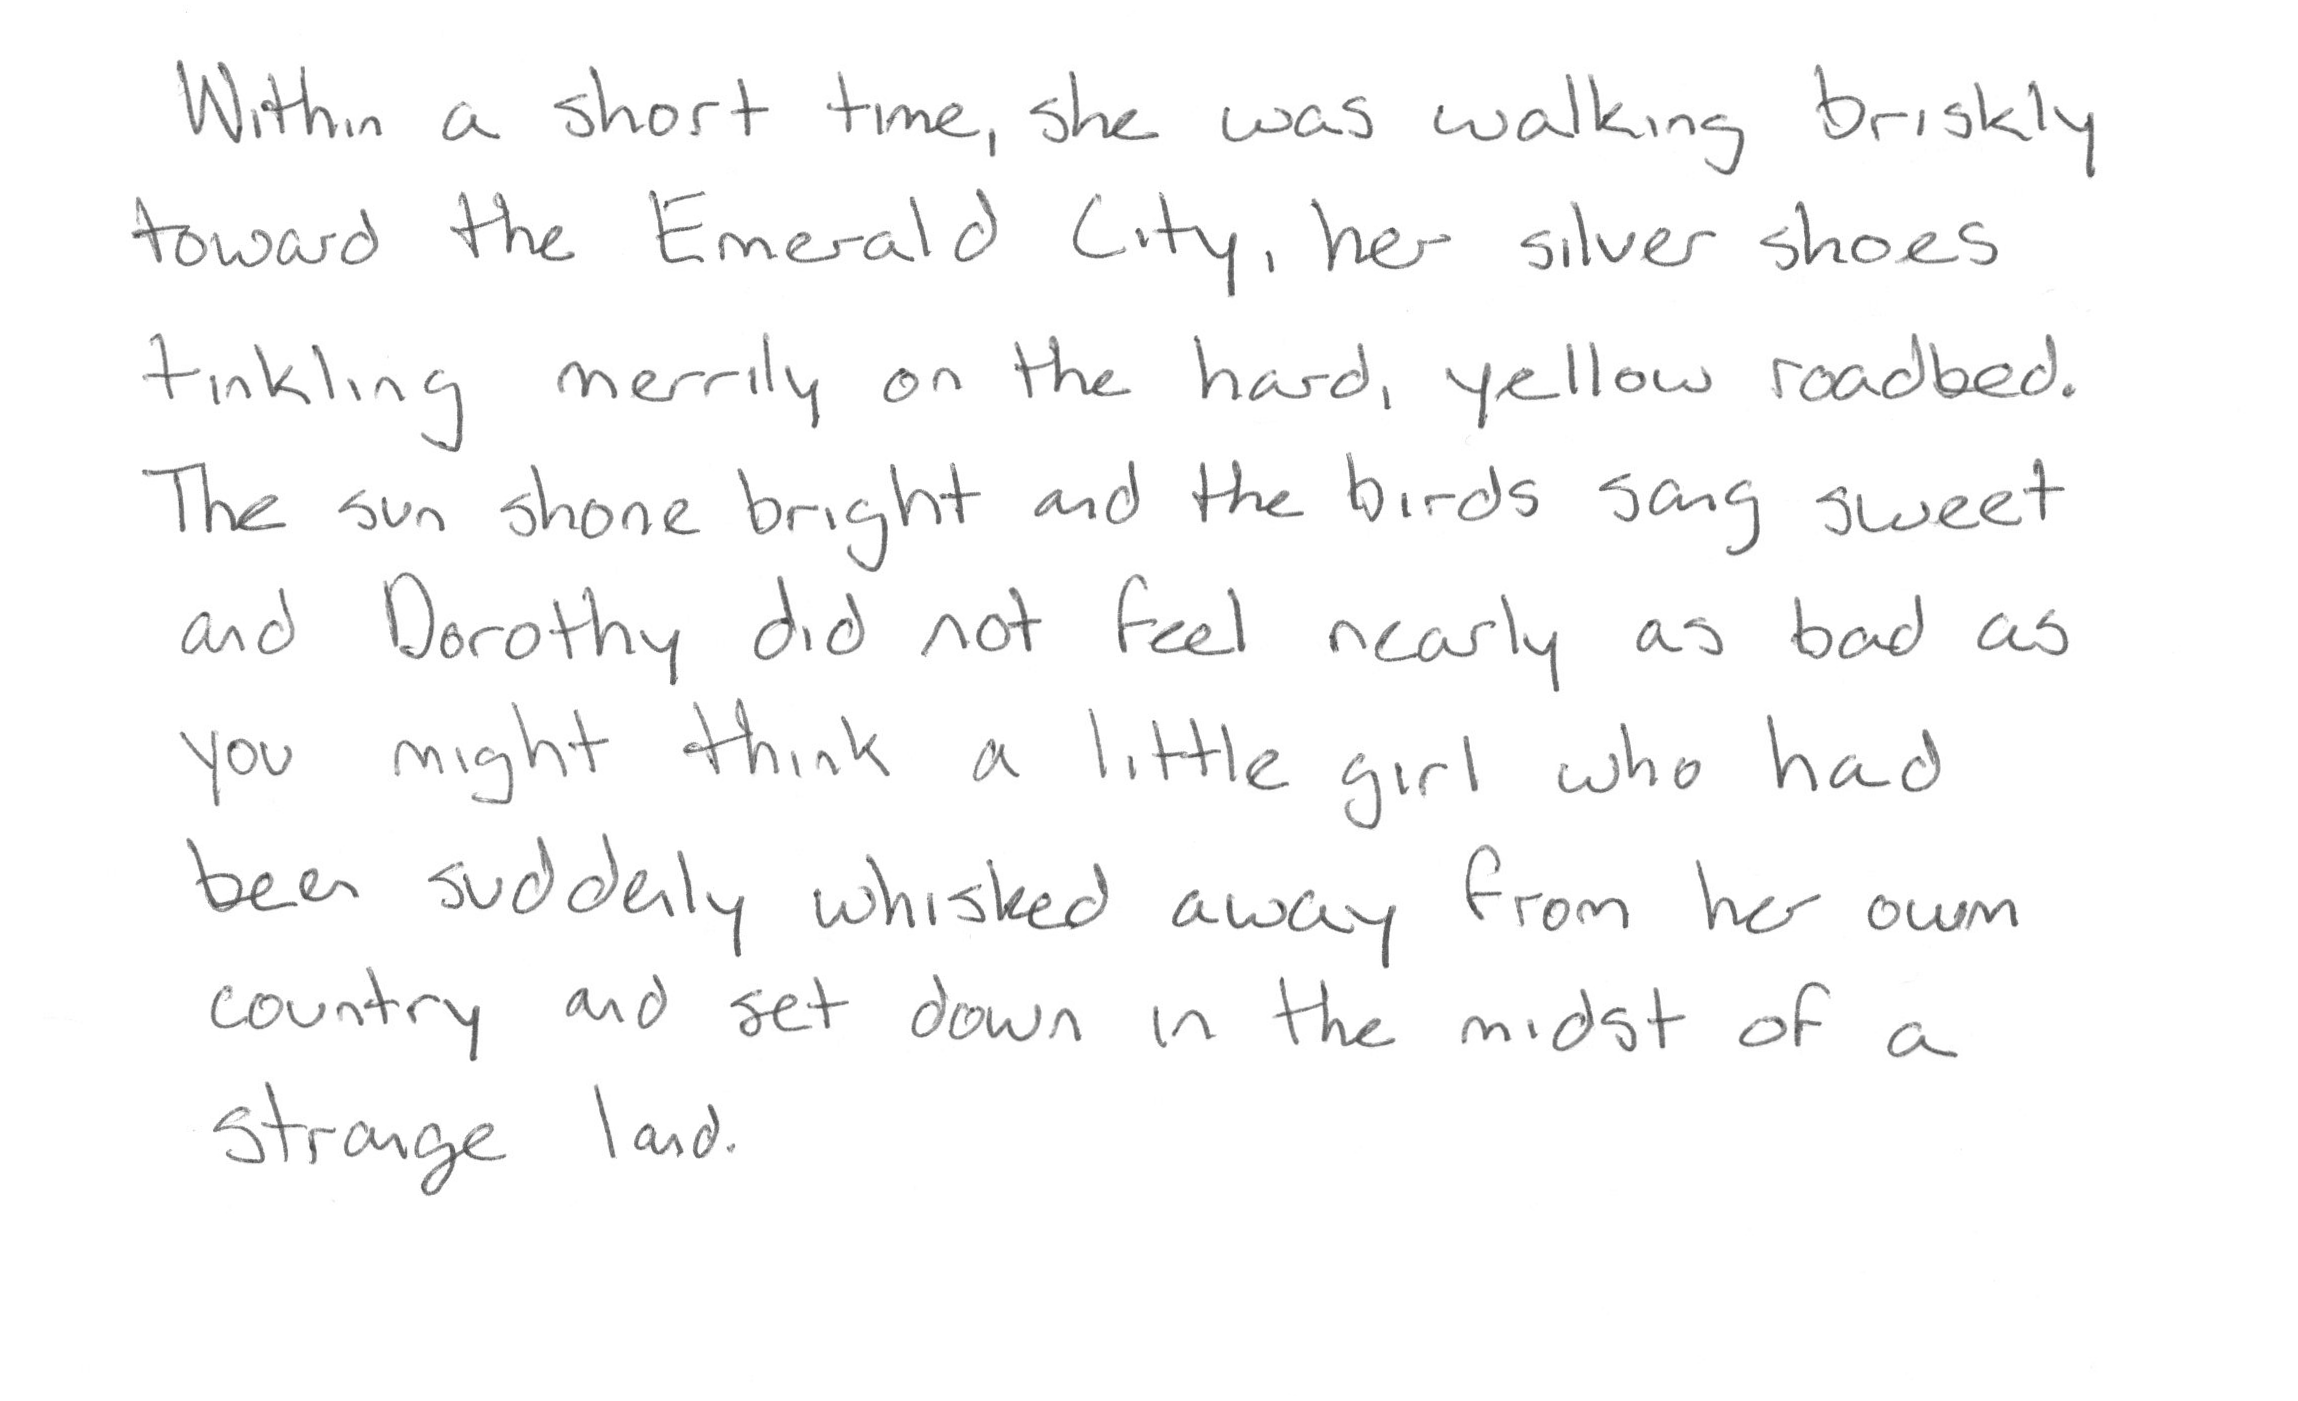 Within a short time, she was walking briskly
toward the Emerald City, her silver shoes
tinkling merrily on the hard, yellow roadbed.
The sun shone bright and the birds sang sweet
and Dorothy did not feel nearly as bad as
you might think a little girl who had
been suddenly whisked away from her own
country and set down in the midst of a
strange land.